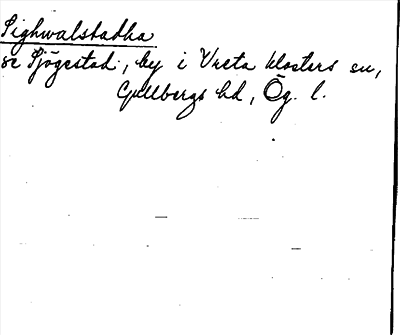 Sighwalstadha
se Sjögestad, by i Vreta klosters sn,
Gullbergs hd, Ög. l.